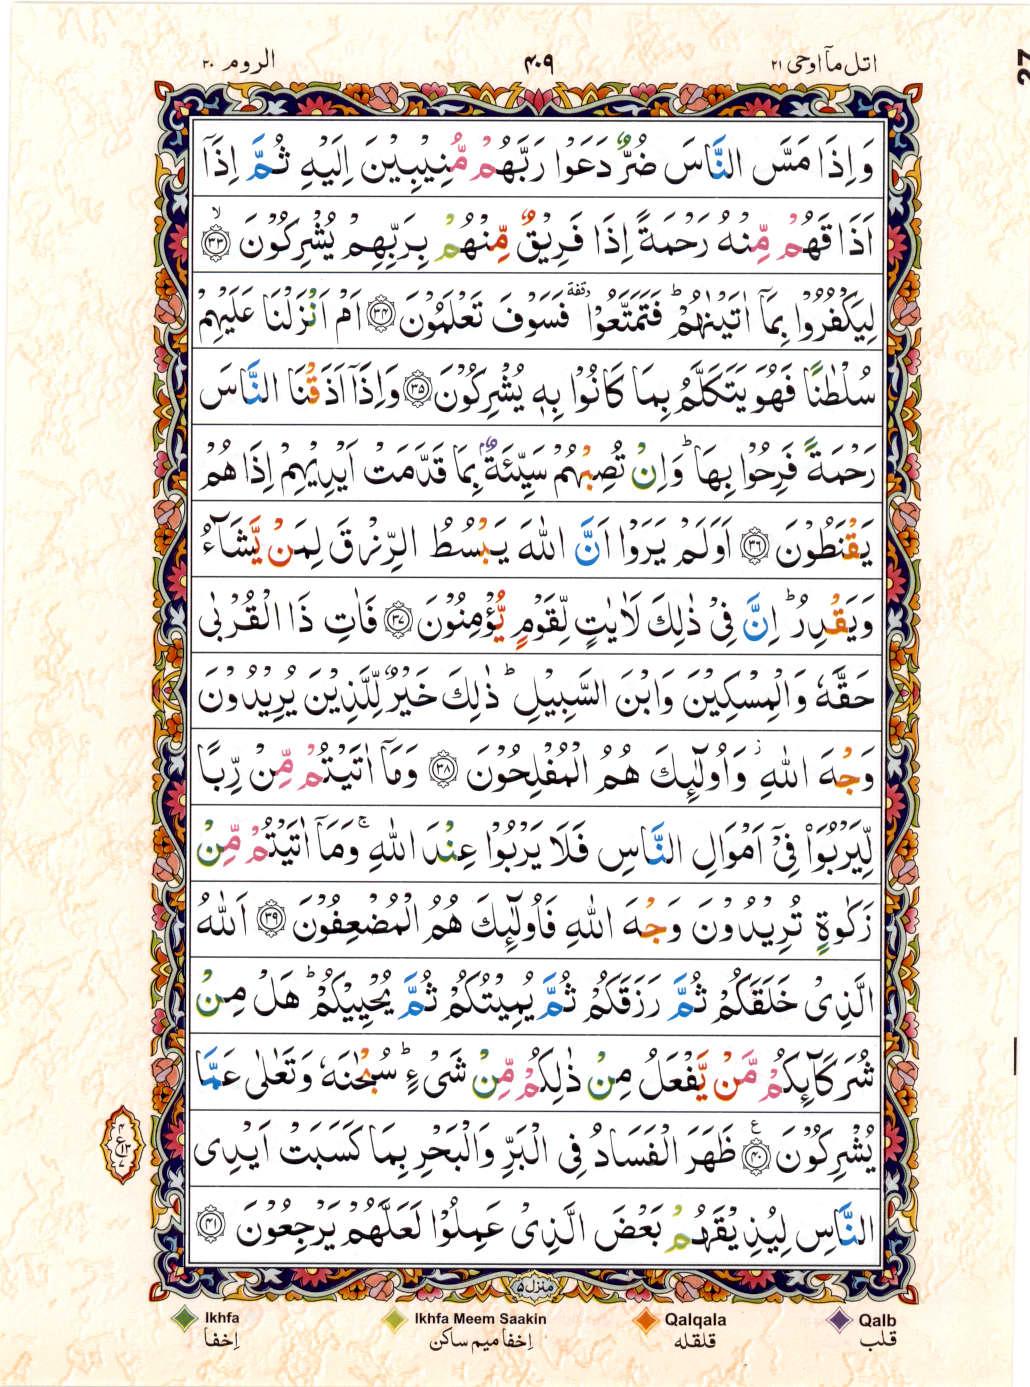 اتل مآ اوحی ۲۱ ۴۰۹ الروم ۳۰
27
وَاِذَا مَسَّ النَّاسَ ضُرٌّ دَعَوْا رَبَّهُمْ مُّنِيْبِيْنَ اِلَيْهِ ثُمَّ اِذَآ
اَذَاقَهُمْ مِّنْهُ رَحْمَةً اِذَا فَرِيْقٌ مِّنْهُمْ بِرَبِّهِمْ يُشْرِكُوْنَ ۙ‏﴿۳۳﴾
لِيَكْفُرُوْا بِمَآ اٰتَيْنٰهُمْ ؕ فَتَمَتَّعُوْا وقفة فَسَوْفَ تَعْلَمُوْنَ ﴿۳۴﴾ اَمْ اَنْزَلْنَا عَلَيْهِمْ
سُلْطٰنًا فَهُوَ يَتَكَلَّمُ بِمَا كَانُوْا بِهٖ يُشْرِكُوْنَ ﴿۳۵﴾ وَاِذَآ اَذَقْنَا النَّاسَ
رَحْمَةً فَرِحُوْا بِهَا ؕ وَاِنْ تُصِبْهُمْ سَيِّئَةٌۢ بِمَا قَدَّمَتْ اَيْدِيْهِمْ اِذَا هُمْ
يَقْنَطُوْنَ ﴿۳۶﴾ اَوَلَمْ يَرَوْا اَنَّ اللّٰهَ يَبْسُطُ الرِّزْقَ لِمَنْ يَّشَآءُ
وَيَقْدِرُ ؕ اِنَّ فِىْ ذٰلِكَ لَاٰيٰتٍ لِّقَوْمٍ يُّؤْمِنُوْنَ ﴿۳۷﴾ فَاٰتِ ذَا الْقُرْبٰى
حَقَّهٗ وَالْمِسْكِيْنَ وَابْنَ السَّبِيْلِ ؕ ذٰلِكَ خَيْرٌ لِّلَّذِيْنَ يُرِيْدُوْنَ
وَجْهَ اللّٰهِ ؗ وَاُولٰٓئِكَ هُمُ الْمُفْلِحُوْنَ ﴿۳۸﴾ وَمَآ اٰتَيْتُمْ مِّنْ رِّبًا
لِّيَرْبُوَا۟ فِىْٓ اَمْوَالِ النَّاسِ فَلَا يَرْبُوْا عِنْدَ اللّٰهِ ۚ وَمَآ اٰتَيْتُمْ مِّنْ
زَكٰوةٍ تُرِيْدُوْنَ وَجْهَ اللّٰهِ فَاُولٰٓئِكَ هُمُ الْمُضْعِفُوْنَ ﴿۳۹﴾ اَللّٰهُ
الَّذِىْ خَلَقَكُمْ ثُمَّ رَزَقَكُمْ ثُمَّ يُمِيْتُكُمْ ثُمَّ يُحْيِيْكُمْ ؕ هَلْ مِنْ
شُرَكَآئِكُمْ مَّنْ يَّفْعَلُ مِنْ ذٰلِكُمْ مِّنْ شَىْءٍ ؕ سُبْحٰنَهٗ وَتَعٰلٰى عَمَّا
يُشْرِكُوْنَ ﴿۴۰﴾ ع ظَهَرَ الْفَسَادُ فِى الْبَرِّ وَالْبَحْرِ بِمَا كَسَبَتْ اَيْدِى
النَّاسِ لِيُذِيْقَهُمْ بَعْضَ الَّذِىْ عَمِلُوْا لَعَلَّهُمْ يَرْجِعُوْنَ ﴿۴۱﴾
منزل ۵
Ikhfa Ikhfa Meem Saakin Qalqala Qalb
اِخفا اِخفا میم ساکن قلقله قلب